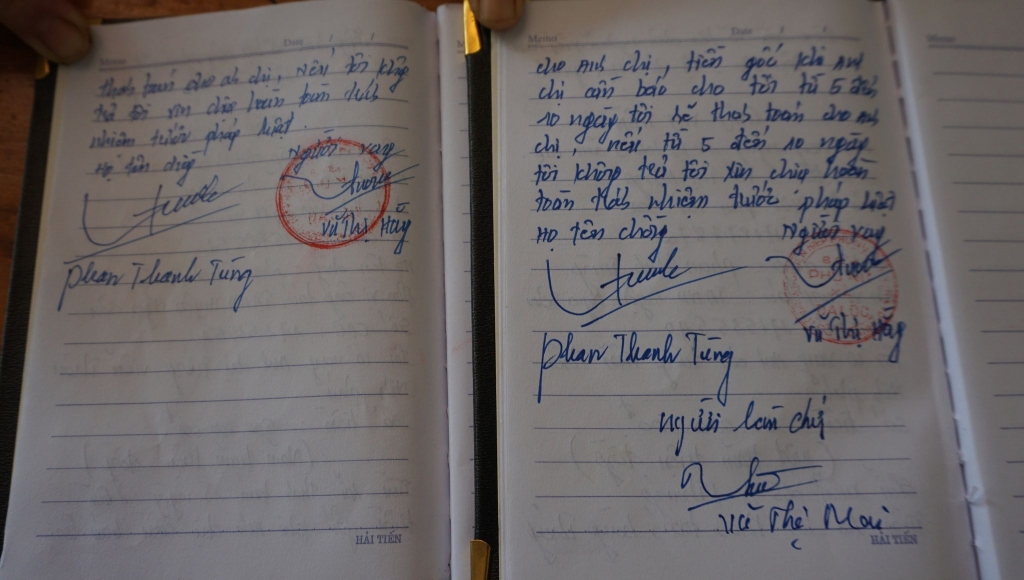 Memo Date / /
thanh toán cho anh chị, nếu tôi không
trả tôi xin chịu hoàn toàn trách
nhiệm trước pháp luật.
Họ tên chồng
Người vay
Vũ Thị Hằng
Phan Thanh Tùng
HẢI TIẾN
Memo Date / /
cho Anh chị, tiền gốc khi Anh
chị cần báo cho tôi từ 5 đến
10 ngày tôi sẽ thanh toán cho Anh
chị, nếu từ 5 đến 10 ngày
tôi không trả tôi xin chịu hoàn
toàn trách nhiệm trước pháp luật
Họ tên chồng
Người vay
Vũ Thị Hằng
Phan Thanh Tùng
người làm chứng
Vũ Thị Mai
HẢI TIẾN
Memo